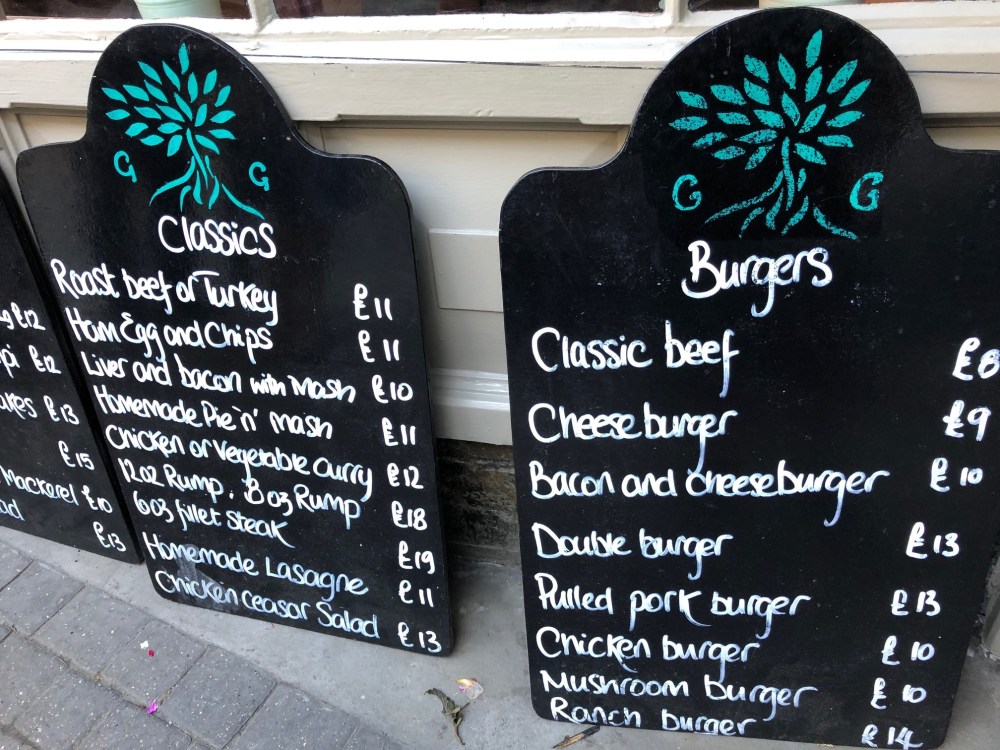 g £12
pi £12
akes £13
£15
Mackerel £10
ad
£13
G G
Classics
Roast beef or Turkey £11
Ham Egg and Chips £11
Liver and bacon with Mash £10
Homemade Pie 'n' mash £11
Chicken or Vegetable curry £12
12oz Rump. 8oz Rump £18
6oz fillet steak £19
Homemade Lasagne £11
Chicken ceasar Salad £13
G G
Burgers
Classic beef £8
Cheese burger £9
Bacon and cheeseburger £10
Double burger £13
Pulled pork burger £13
Chicken burger £10
Mushroom burger £10
Ranch burger £14